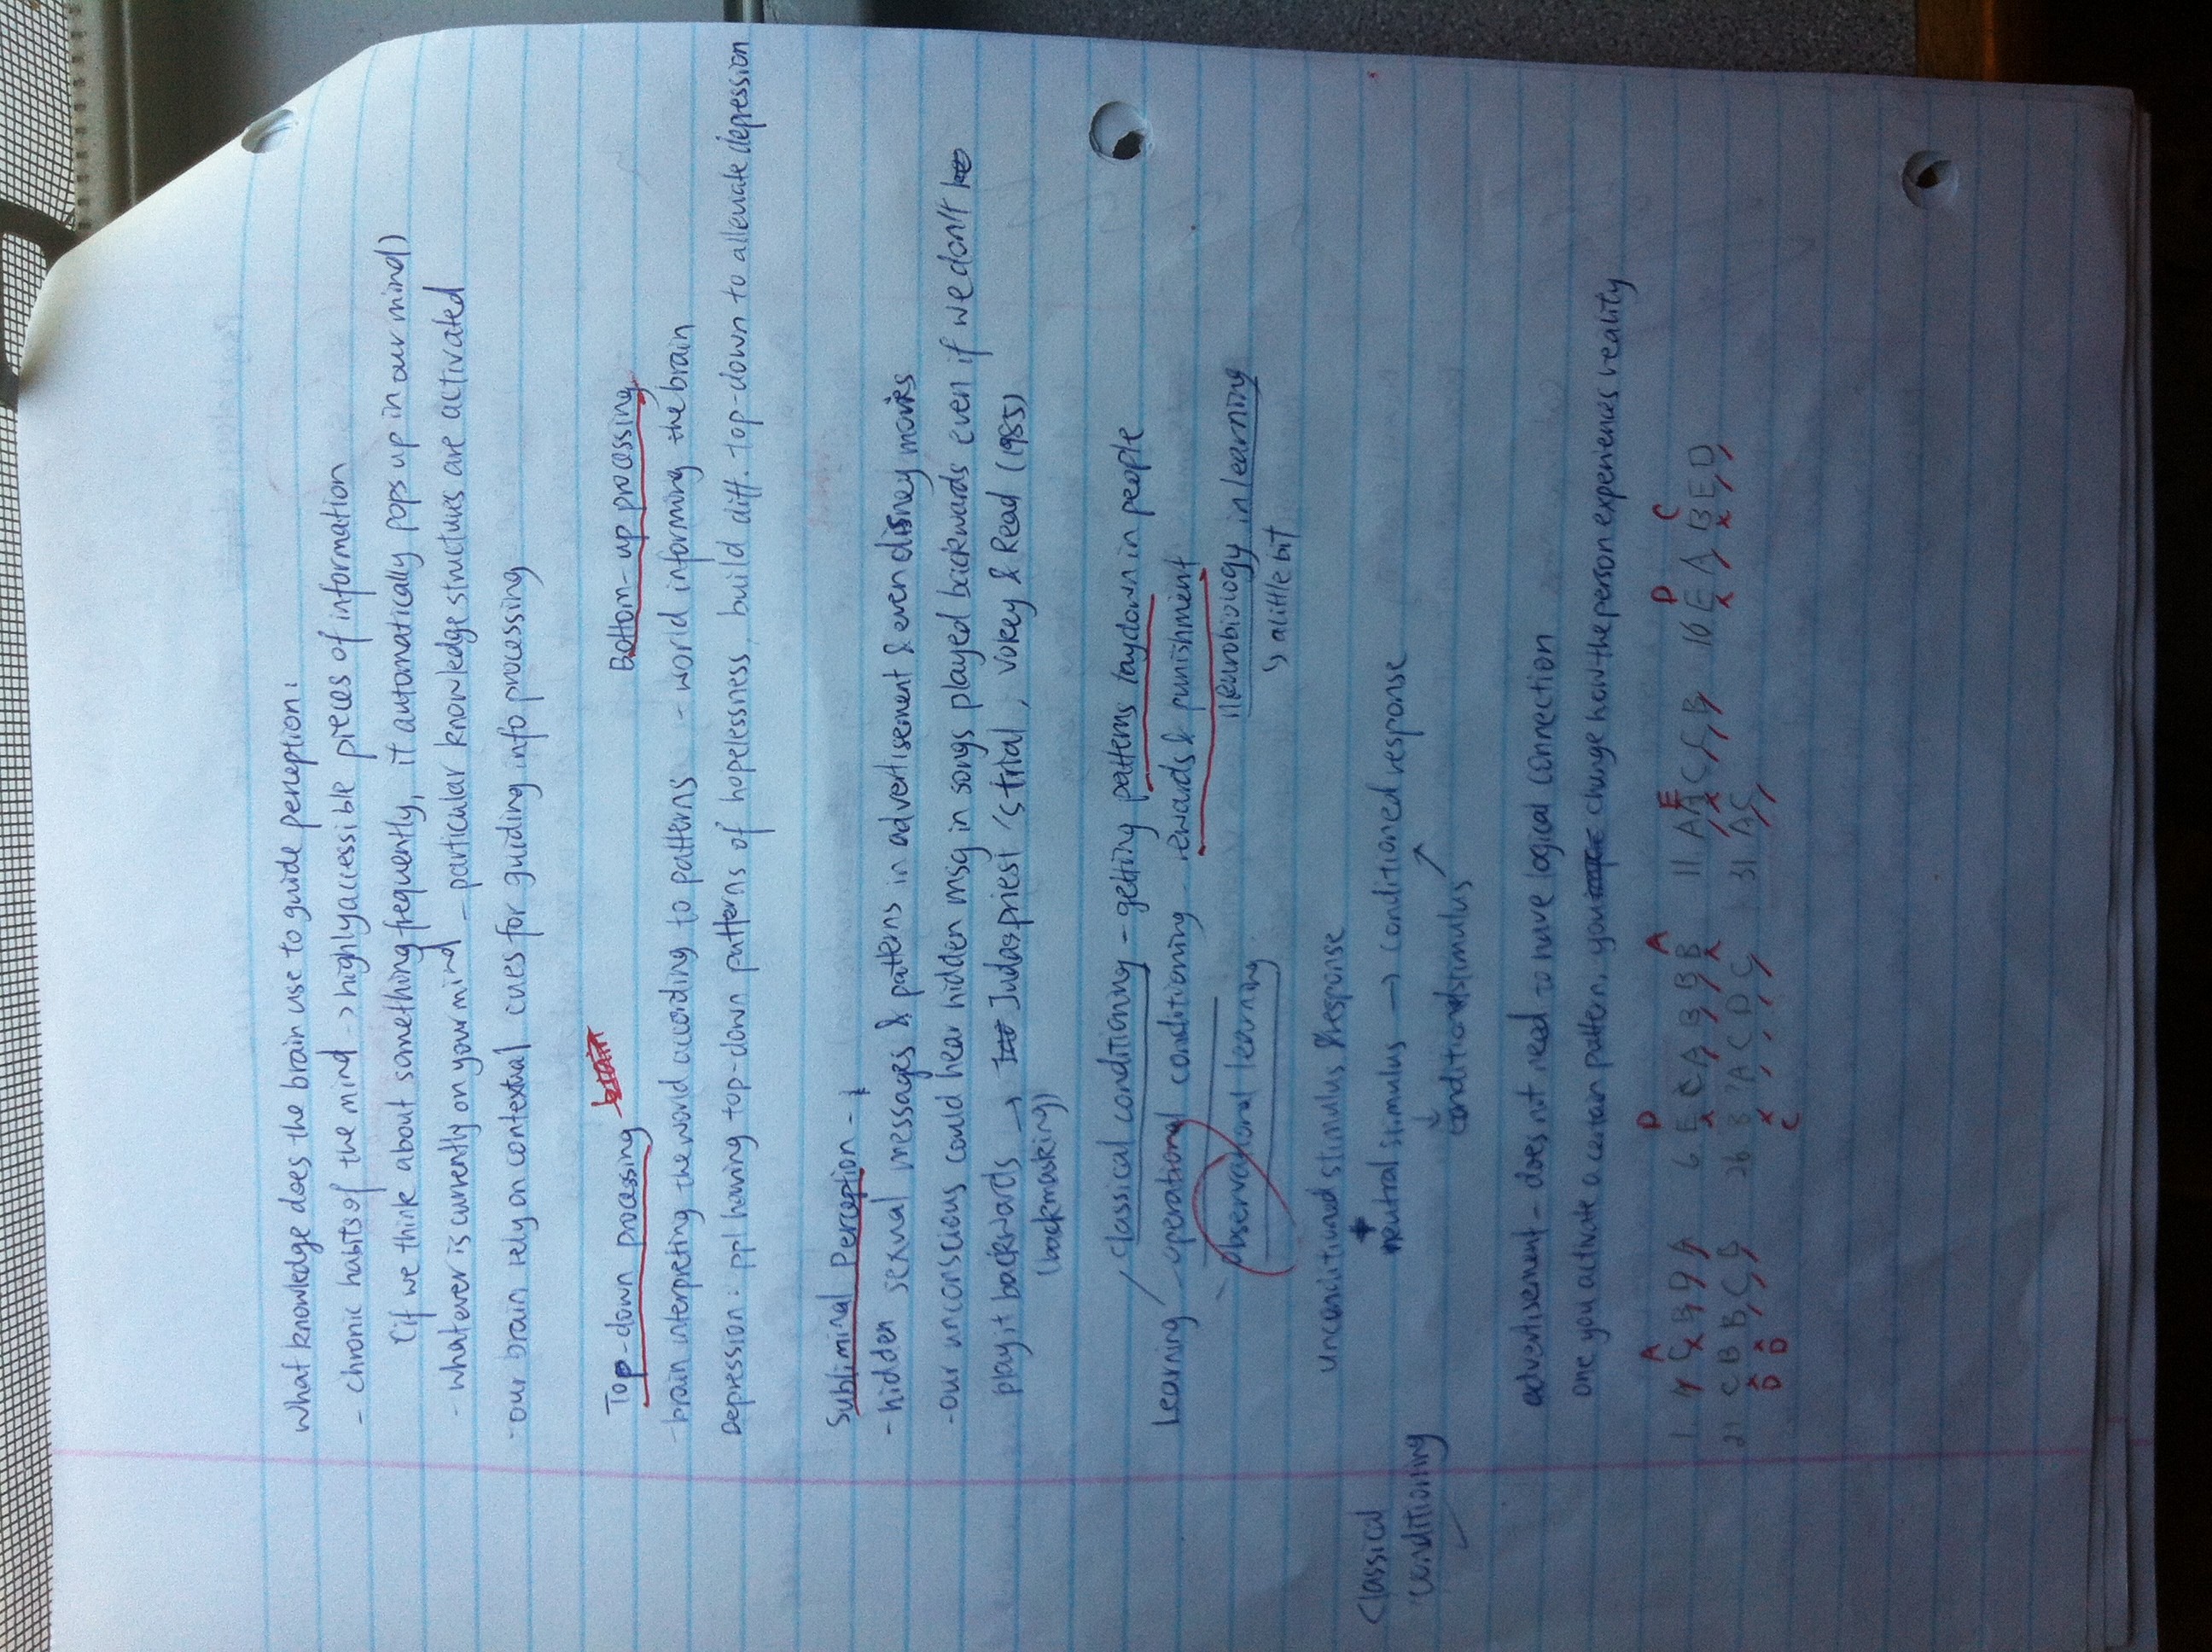 What knowledge does the brain use to guide perception:
- chronic habits of the mind -> highly accessible pieces of information
(if we think about something frequently, it automatically pops up in our mind)
- whatever is currently on your mind - particular knowledge structures are activated
- our brain rely on contextual cues for guiding info processing
Top-down processing brain Bottom-up processing
- brain interpreting the world according to patterns - world informing the brain
Depression: ppl having top-down patterns of hopelessness, build diff. top-down to alleviate depression
Subliminal Perception -
- hidden sexual messages & patterns in advertisement & even disney movies
- our unconscious could hear hidden msg in songs played backwards even if we don't
play it backwards -> Judas priest 's trial, Vokey & Read (1985)
(backmasking)
Learning
classical conditioning - getting patterns laydown in people
operational conditioning - rewards & punishment
observational learning
neurobiology in learning
↳ a little bit
Classical conditioning
unconditioned stimulus & response
neutral stimulus -> conditioned response
↓
conditioned stimulus ↗
advertisement - does not need to have logical connection
one you activate a certain pattern, you change how the person experiences reality
A D A E D C
1 C B 6 E C A B B B 11 A A C C B 16 E A B E D
21 C B B C C 26 B A C D C 31 A C
D D C